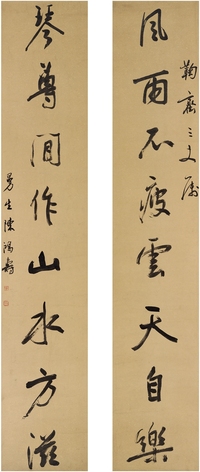 鞠齋三丈屬
風雨不疲雲天自樂
琴尊間作山水方滋
曼生陳鴻壽